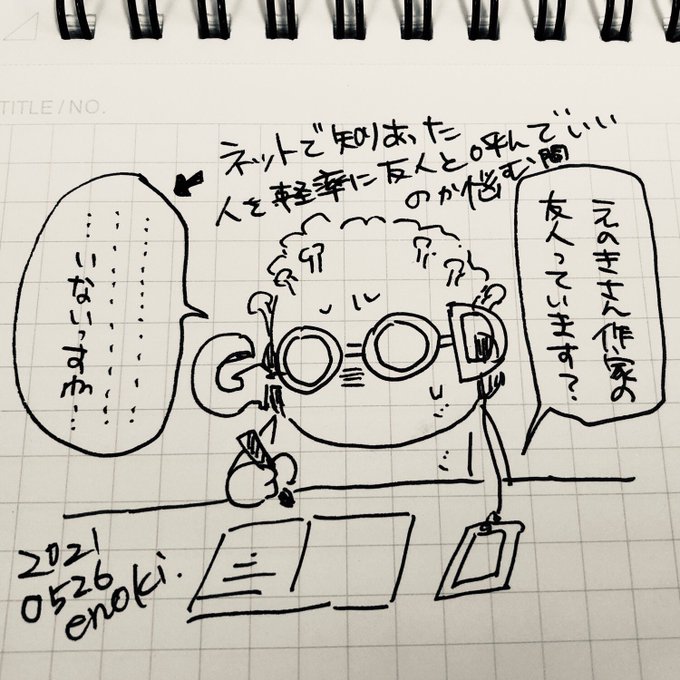 TITLE / NO.
ネットで知りあった
人を軽率に友人と呼んでいい
のか悩む間
えのきさん作家の
友人っています?
……………
……………
…いないっすね…
2021
0526
enoki.